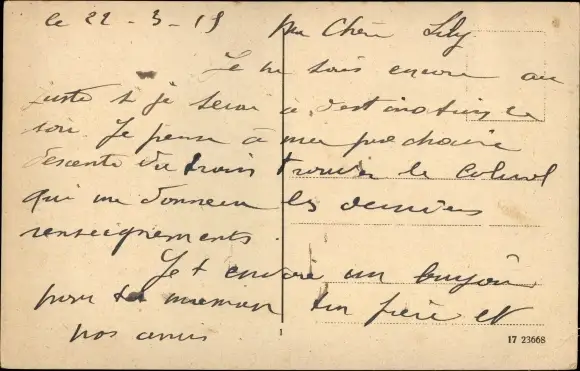 le 22 - 3 - 19 ma Chère Lily
Je ne sais encore au
juste si je serai à destination ce
soir. Je pense à ma prochaine
descente du train trouver le colonel
qui me donnera les derniers
renseignements.
Je t envoie un
pour ta maman ton frère et
nos amis
1
17 23668